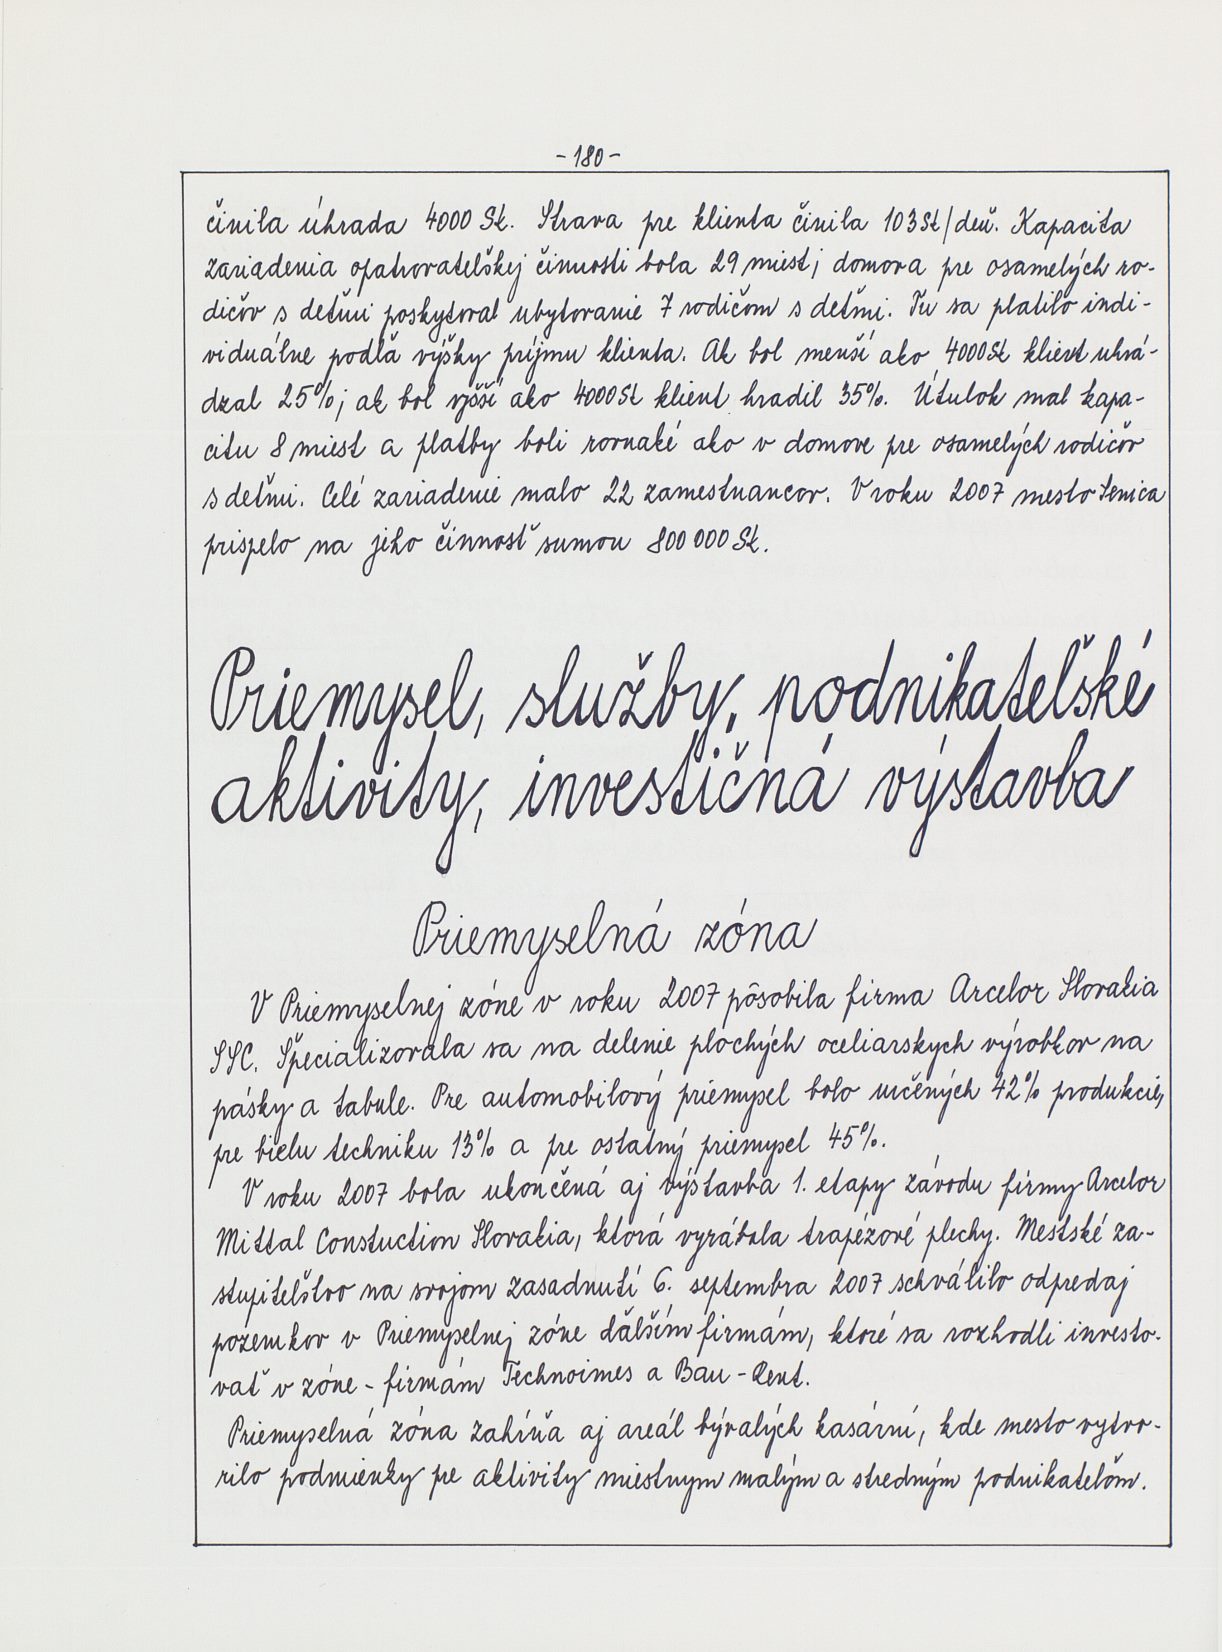 - 180 -
činila úhrada 4000 Sk. Strava pre klienta činila 103 Sk/deň. Kapacita
zariadenia opatrovateľskej činnosti bola 29 miest; domova pre osamelých ro-
dičov s deťmi poskytoval ubytovanie 7 rodičom s deťmi. Tu sa platilo indi-
viduálne podľa výšky príjmu klienta. Ak bol menší ako 4000 Sk klient uhrá-
dzal 25%; ak bol vyšší ako 4000 Sk klient hradil 35%. Útulok mal kapa-
citu 8 miest a platby boli rovnaké ako v domove pre osamelých rodičov
s deťmi. Celé zariadenie malo 22 zamestnancov. V roku 2007 mesto Senica
prispelo na jeho činnosť sumou 800 000 Sk.
Priemysel, služby, podnikateľské
aktivity, investičná výstavba
Priemyselná zóna
V Priemyselnej zóne v roku 2007 pôsobila firma Arcelor Slovakia
SSC. Špecializovala sa na delenie plochých oceliarskych výrobkov na
pásky a tabule. Pre automobilový priemysel bolo určených 42% produkcie,
pre bielu techniku 13% a pre ostatný priemysel 45%.
V roku 2007 bola ukončená aj výstavba 1. etapy závodu firmy Arcelor
Mittal Constuction Slovakia, ktorá vyrábala trapézové plechy. Mestské za-
stupiteľstvo na svojom zasadnutí 6. septembra 2007 schválilo odpredaj
pozemkov v Priemyselnej zóne ďalším firmám, ktoré sa rozhodli investo-
vať v zóne - firmám Technoimes a Bau - Rent.
Priemyselná zóna zahŕňa aj areál bývalých kasární, kde mesto vytvo-
rilo podmienky pre aktivity miestnym malým a stredným podnikateľom.